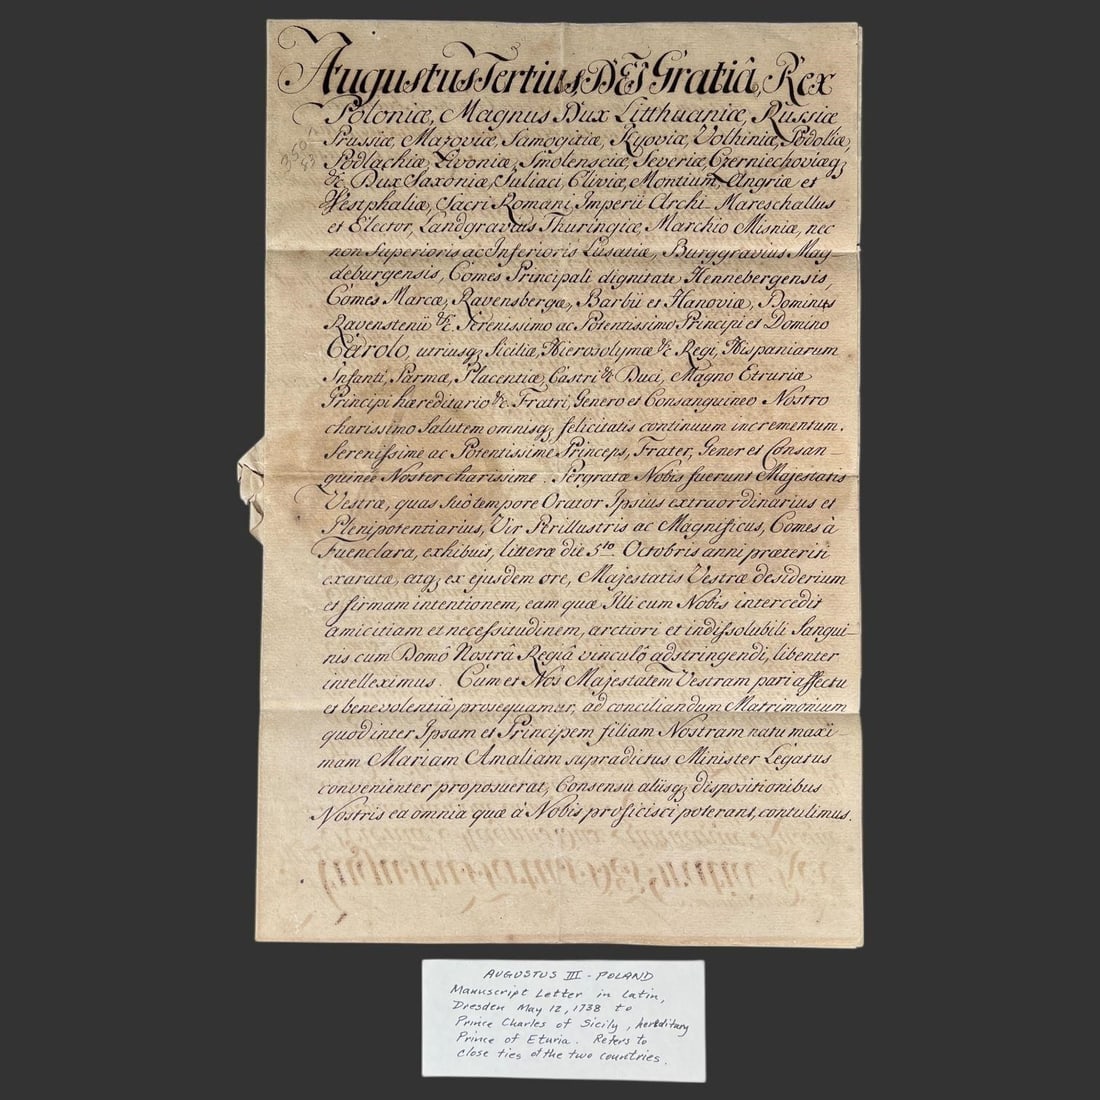 Augustus Tertius, DEI Gratiâ, Rex
Poloniæ, Magnus Dux Litthuaniæ, Russiæ
Prussiæ, Mazoviæ, Samogitiæ, Kyoviæ, Volhiniæ, Podoliæ,
Podlachiæ, Livoniæ, Smolensciæ, Severiæ, Czerniechoviæqȝ
&c Dux Saxoniæ, Juliaci, Cliviæ, Montium, Angriæ et
Vestphaliæ, Sacri Romani Imperii Archi-Mareschallus
et Elector, Landgravius Thuringiæ, Marchio Misniæ, nec
non Superioris ac Inferioris Lusatiæ, Burggravius Mag-
deburgensis, Comes Principali dignitate Hennebergensis,
Comes Marcæ, Ravensbergæ, Barbii et Hanoviæ, Dominus
Ravensteinii &c. Serenissimo ac Potentissimo Principi et Domino
Carolo, utriusqȝ Siciliæ, Hierosolymæ &c Regi, Hispaniarum
Infanti, Parmæ, Placentiæ, Castri &c Duci, Magno Etruriæ
Principi hæreditario &c Fratri, Genero et Consanguineo Nostro
charissimo Salutem omnisqȝ felicitatis continuum incrementum.
Serenissime ac Potentissime Princeps, Frater, Gener et Consan-
guinee Noster charissime. Pergratæ Nobis fuerunt Majestatis
Vestræ, quas suo tempore Orator Ipsius extraordinarius et
Plenipotentiarius, Vir Perillustris ac Magnificus, Comes à
Fuenclara, exhibuit, litteræ die 5to Octobris anni præteriti
exaratæ, atqȝ ex ejusdem ore, Majestatis Vestræ desiderium
et firmam intentionem, eam quæ Illi cum Nobis intercedit
amicitiam et necessitudinem, arctiori et indissolubili Sangui-
nis cum Domô Nostrâ Regiâ vinculô adstringendi, libenter
intelleximus. Cum et Nos Majestatem Vestram pari affectu
et benevolentiâ prosequamur, ad conciliandum Matrimonium
quod inter Ipsam et Principem filiam Nostram natu maxi-
mam Mariam Amaliam supradictus Minister Legatus
convenienter proposuerat, Consensu aliisqȝ dispositionibus
Nostris ea omnia quæ à Nobis proficisci poterant, contulimus.
AUGUSTUS III - POLAND
Manuscript Letter in Latin,
Dresden May 12, 1738 to
Prince Charles of Sicily, hereditary
Prince of Eturia. Refers to
close ties of the two countries.